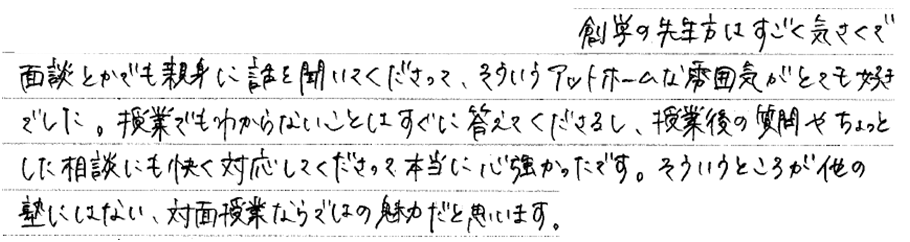 創学の先生方はすごく気さくで
面談とかでも親身に話を聞いてくださって、そういうアットホームな雰囲気がとても好き
でした。授業でもわからないことはすぐに答えてくださるし、授業後の質問やちょっと
した相談にも快く対応してくださって本当に心強かったです。そういうところが他の
塾にはない、対面授業ならではの魅力だと思います。